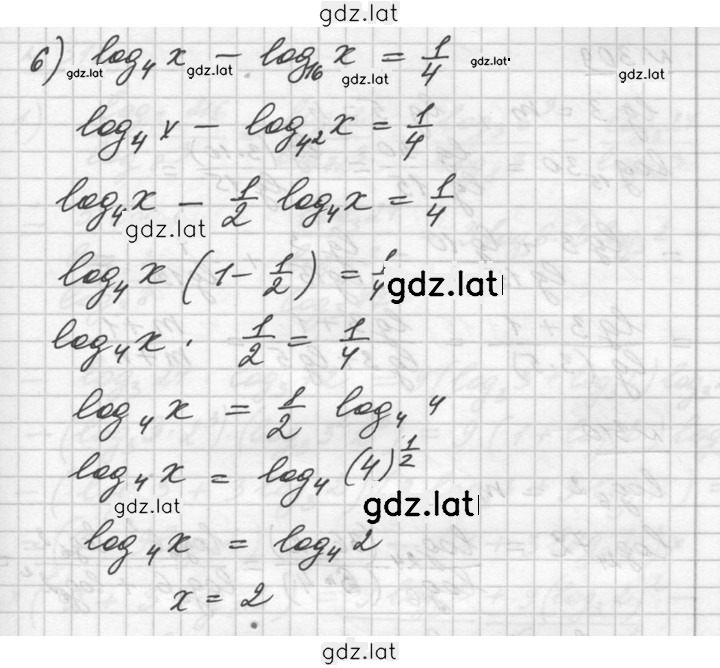 gdz.lat
б) log₄ x − log₁₆ x = 1/4
gdz.lat gdz.lat gdz.lat gdz.lat gdz.lat
log₄ x − log₄² x = 1/4
log₄ x − 1/2 log₄ x = 1/4
gdz.lat
log₄ x (1 − 1/2) = 1/4
gdz.lat
log₄ x · 1/2 = 1/4
log₄ x = 1/2 log₄ 4
log₄ x = log₄ (4)^1/2
gdz.lat gdz.lat
log₄ x = log₄ 2
x = 2
gdz.lat